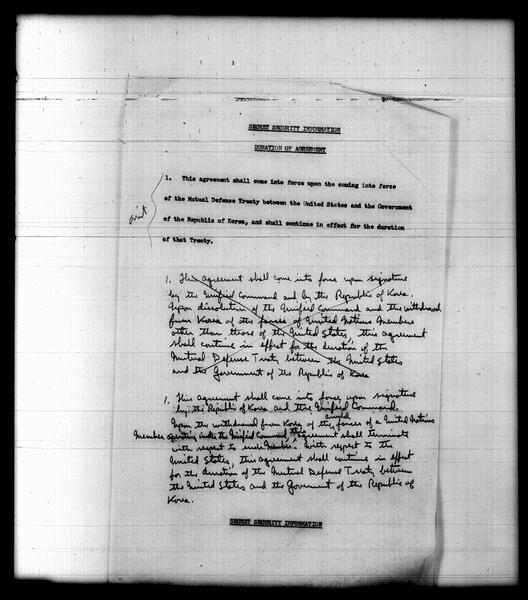 SECRET SECURITY INFORMATION
DURATION OF AGREEMENT
1. This agreement shall come into force upon the coming into force
of the Mutual Defense Treaty between the United States and the Government
of the Republic of Korea, and shall continue in effect for the duration
of that Treaty.
omit
1. This agreement shall come into force upon signature
by the Unified Command and by the Republic of Korea.
Upon dissolution of the Unified Command and the withdrawal
from Korea of the forces of United Nations Members
other than those of the United States, this agreement
shall continue in effect for the duration of the
Mutual Defense Treaty between the United States
and the Government of the Republic of Korea
1. This agreement shall come into force upon signature
by the Republic of Korea and the Unified Command.
Upon the withdrawal from Korea of the forces of a United Nations
Member operating under the Unified Command, this agreement shall terminate
with respect to such Member. With respect to the
United States, this agreement shall continue in effect
for the duration of the Mutual Defense Treaty between
the United States and the Government of the Republic of
Korea.
SECRET SECURITY INFORMATION